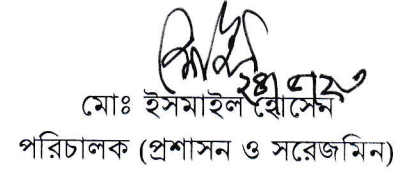 মোঃ ইসমাইল হোসেন
পরিচালক (প্রশাসন ও সরেজমিন)